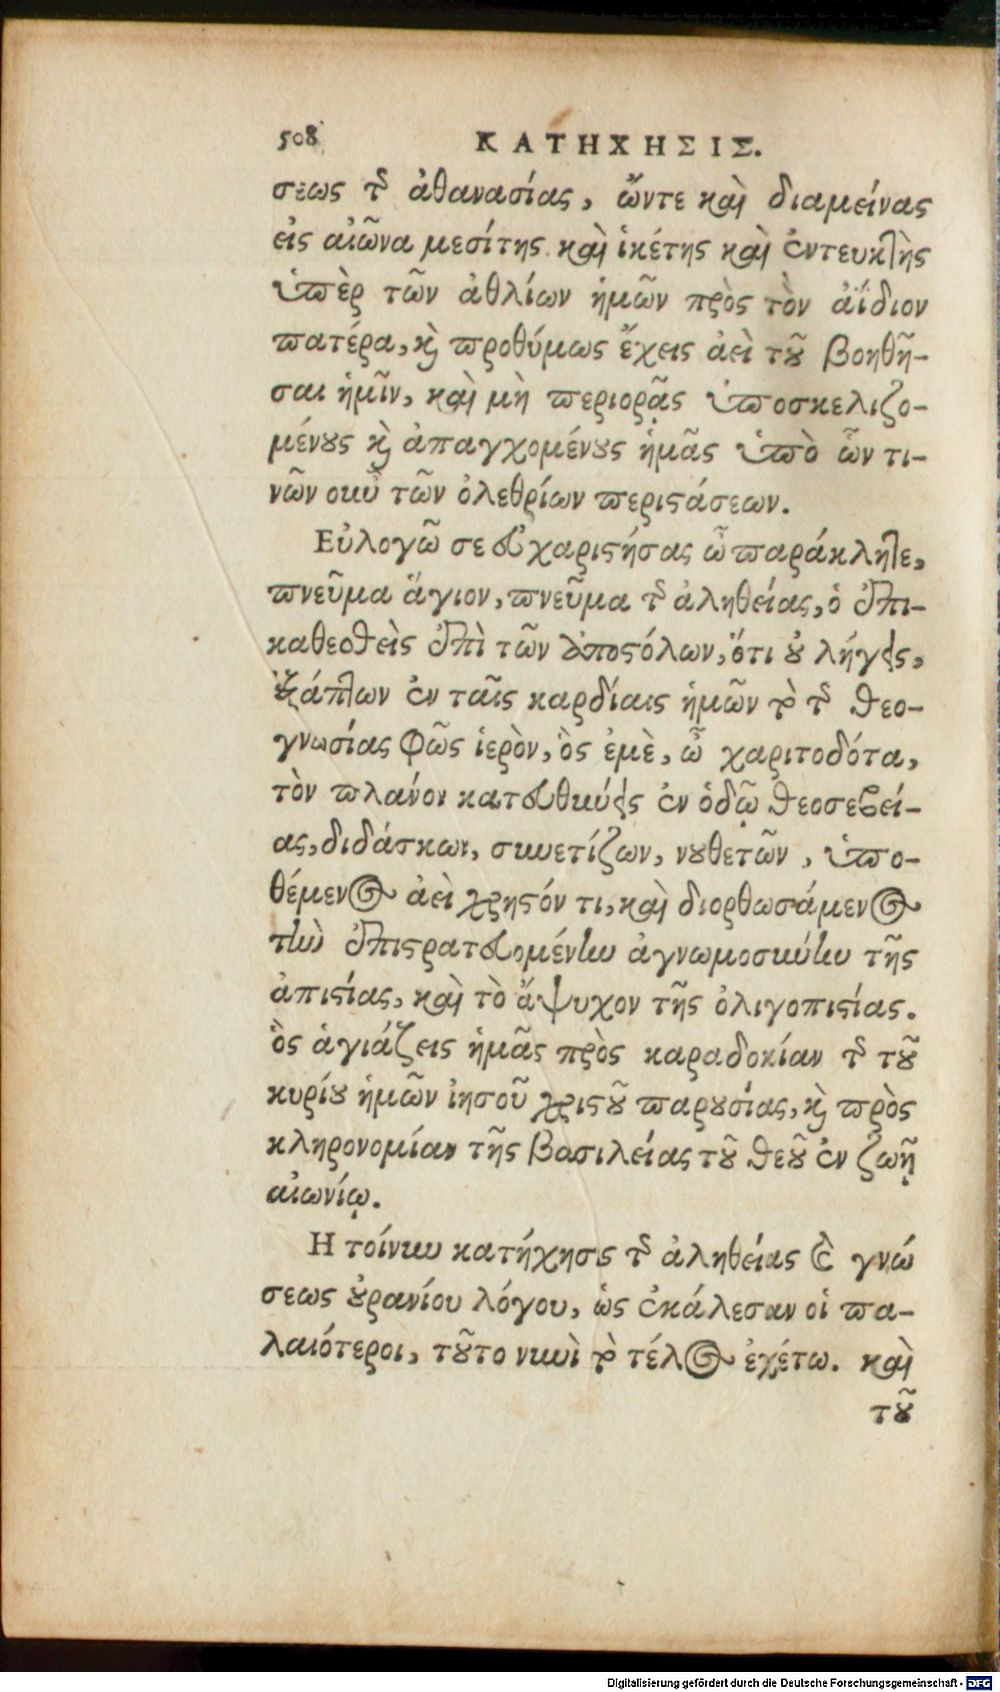 508 ΚΑΤΗΧΗΣΙΣ.
σεως τῆς ἀθανασίας, ὤντε καὶ διαμείνας
εἰς αἰῶνα μεσίτης καὶ ἱκέτης καὶ ἐντευκτὴς
ὑπὲρ τῶν ἀθλίων ἡμῶν πρὸς τὸν ἀΐδιον
πατέρα, καὶ προθύμως ἔχεις ἀεὶ τοῦ βοηθῆ-
σαι ἡμῖν, καὶ μὴ περιορᾷς ὑποσκελιζο-
μένους καὶ ἀπαγχομένους ἡμᾶς ὑπὸ ὧν τι-
νῶν οὖν τῶν ὀλεθρίων περιστάσεων.
Εὐλογῶ σε εὐχαριστήσας ὦ παράκλητε,
πνεῦμα ἅγιον, πνεῦμα τῆς ἀληθείας, ὁ ἐπι-
καθεσθεὶς ἐπὶ τῶν ἀποστόλων, ὅτι οὐ λήγεις,
ἐξάπτων ἐν ταῖς καρδίαις ἡμῶν τὸ τῆς θεο-
γνωσίας φῶς ἱερὸν, ὃς ἐμὲ, ὦ χαριτοδότα,
τὸν πλάνον κατευθύνεις ἐν ὁδῷ θεοσεβεί-
ας, διδάσκων, συνετίζων, νουθετῶν, ὑπο-
θέμενος ἀεὶ χρηστόν τι, καὶ διορθωσάμενος
τὴν ἐπιστρατευομένην ἀγνωμοσύνην τῆς
ἀπιστίας, καὶ τὸ ἄψυχον τῆς ὀλιγοπιστίας.
ὃς ἁγιάζεις ἡμᾶς πρὸς καραδοκίαν τῆς τοῦ
κυρίου ἡμῶν ἰησοῦ χριστοῦ παρουσίας, καὶ πρὸς
κληρονομίαν τῆς βασιλείας τοῦ θεοῦ ἐν ζωῇ
αἰωνίῳ.
Η τοίνυν κατήχησις τῆς ἀληθείας καὶ γνώ
σεως οὐρανίου λόγου, ὡς ἐκάλεσαν οἱ πα-
λαιότεροι, τοῦτο νυνὶ τὸ τέλος ἐχέτω. καὶ
τοῦ
Digitalisierung gefördert durch die Deutsche Forschungsgemeinschaft - DFG